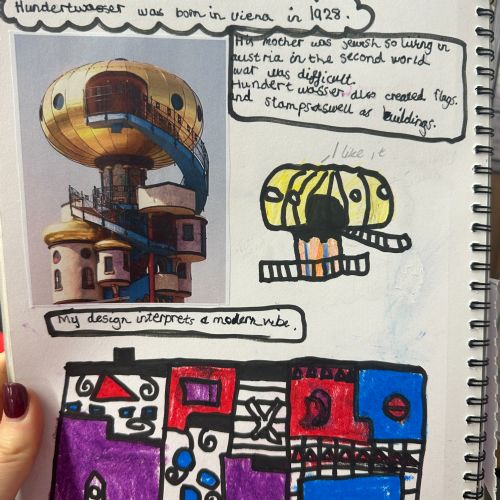 Hundertwasser was born in viena in 1928.
His mother was jewish so living in
austria in the second world
war was difficult.
Hundert wasser also created flags.
and stamps aswell as buildings.
I like it
My design interprets a modern vibe.